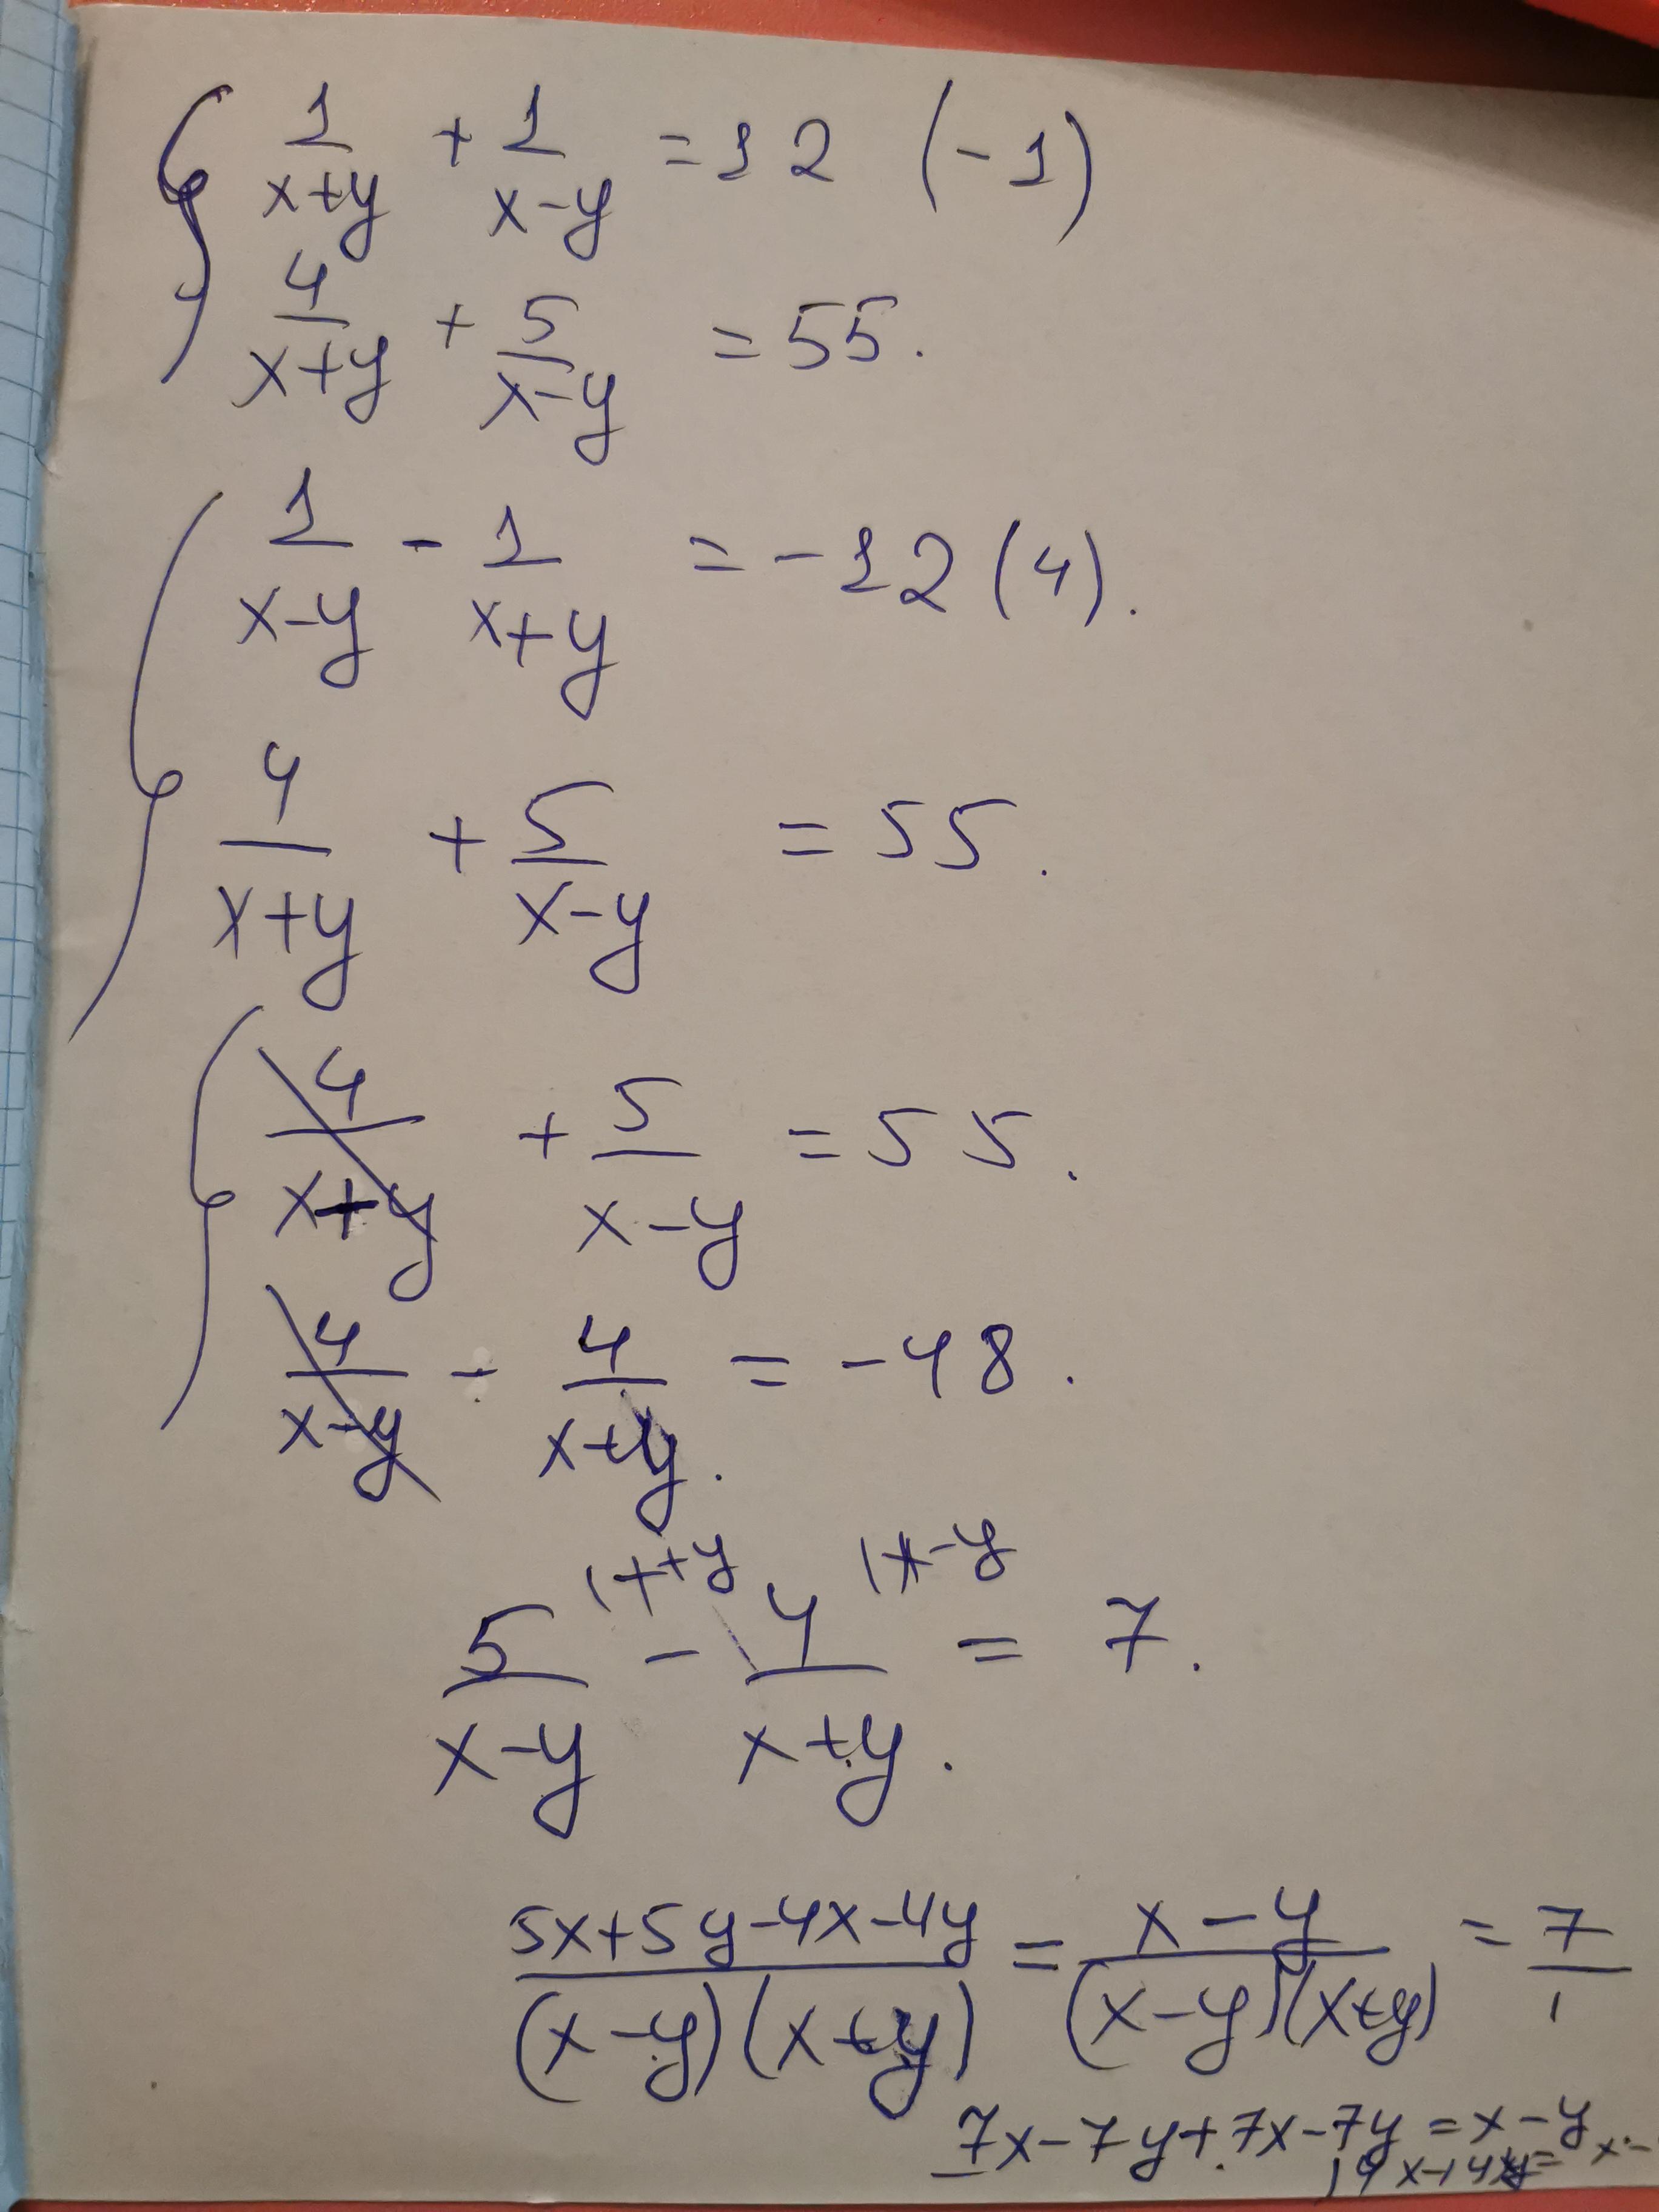 1/(x+y) + 1/(x-y) = 12 (-1)
4/(x+y) + 5/(x-y) = 55.
1/(x-y) - 1/(x+y) = -12 (4).
4/(x+y) + 5/(x-y) = 55.
4/(x+y) + 5/(x-y) = 55.
4/(x-y) - 4/(x+y) = -48.
5/(x-y) |x+y - 4/(x+y) |x-y = 7.
(5x+5y-4x-4y)/((x-y)(x+y)) = (x-y)/((x-y)(x+y)) = 7/1
7x-7y+7x-7y = x-y
14x-14y = x-